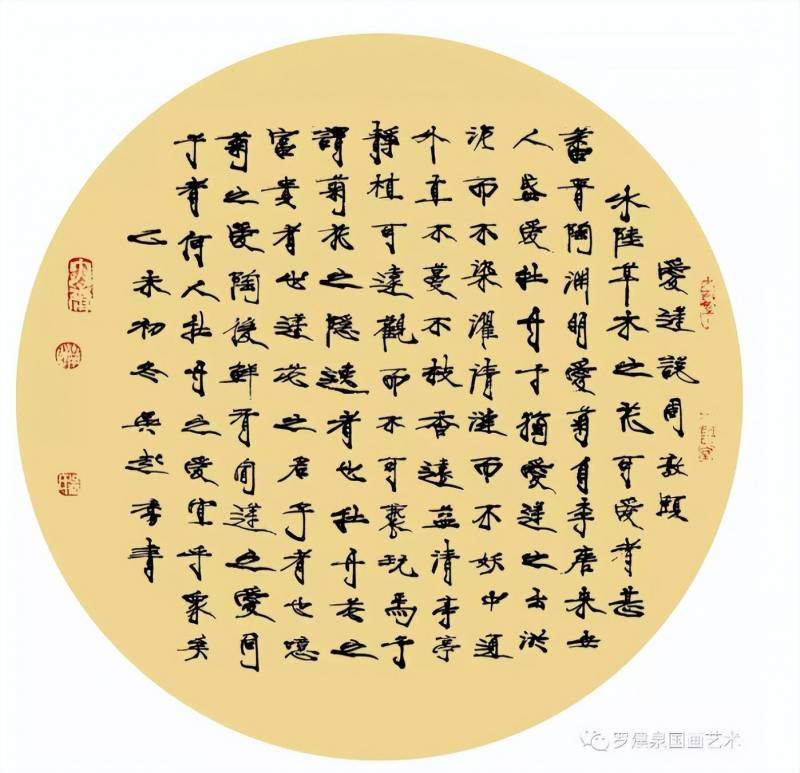 愛蓮說周敦頤
水陸草木之花可愛者甚
蕃晋陶渊明愛菊自李唐来世
人盛愛牡丹予獨愛蓮之出淤
泥而不染濯清漣而不妖中通
外直不蔓不枝香遠益清亭亭
静植可遠觀而不可褻玩焉予
謂菊花之隱逸者也牡丹花之
富貴者也蓮花之君子者也噫
菊之愛陶後鮮有聞蓮之愛同
予者何人牡丹之愛宜乎衆矣
乙未初冬書
罗建泉国画艺术